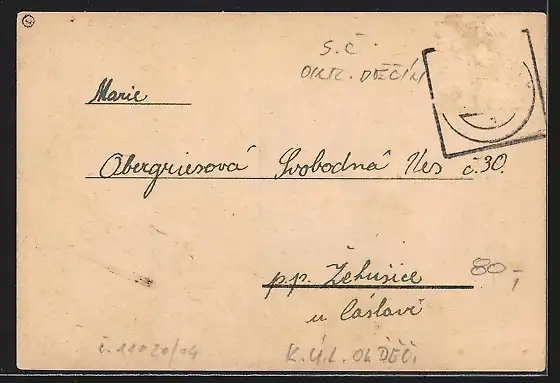 S.Č
OKR. DĚČÍN
Marie
Obergriesová Svobodná Ves č.30.
p.p. Žehušice
80,-
u Čáslavi
č. 11020/04
K.Ú.L. OK DĚČ.